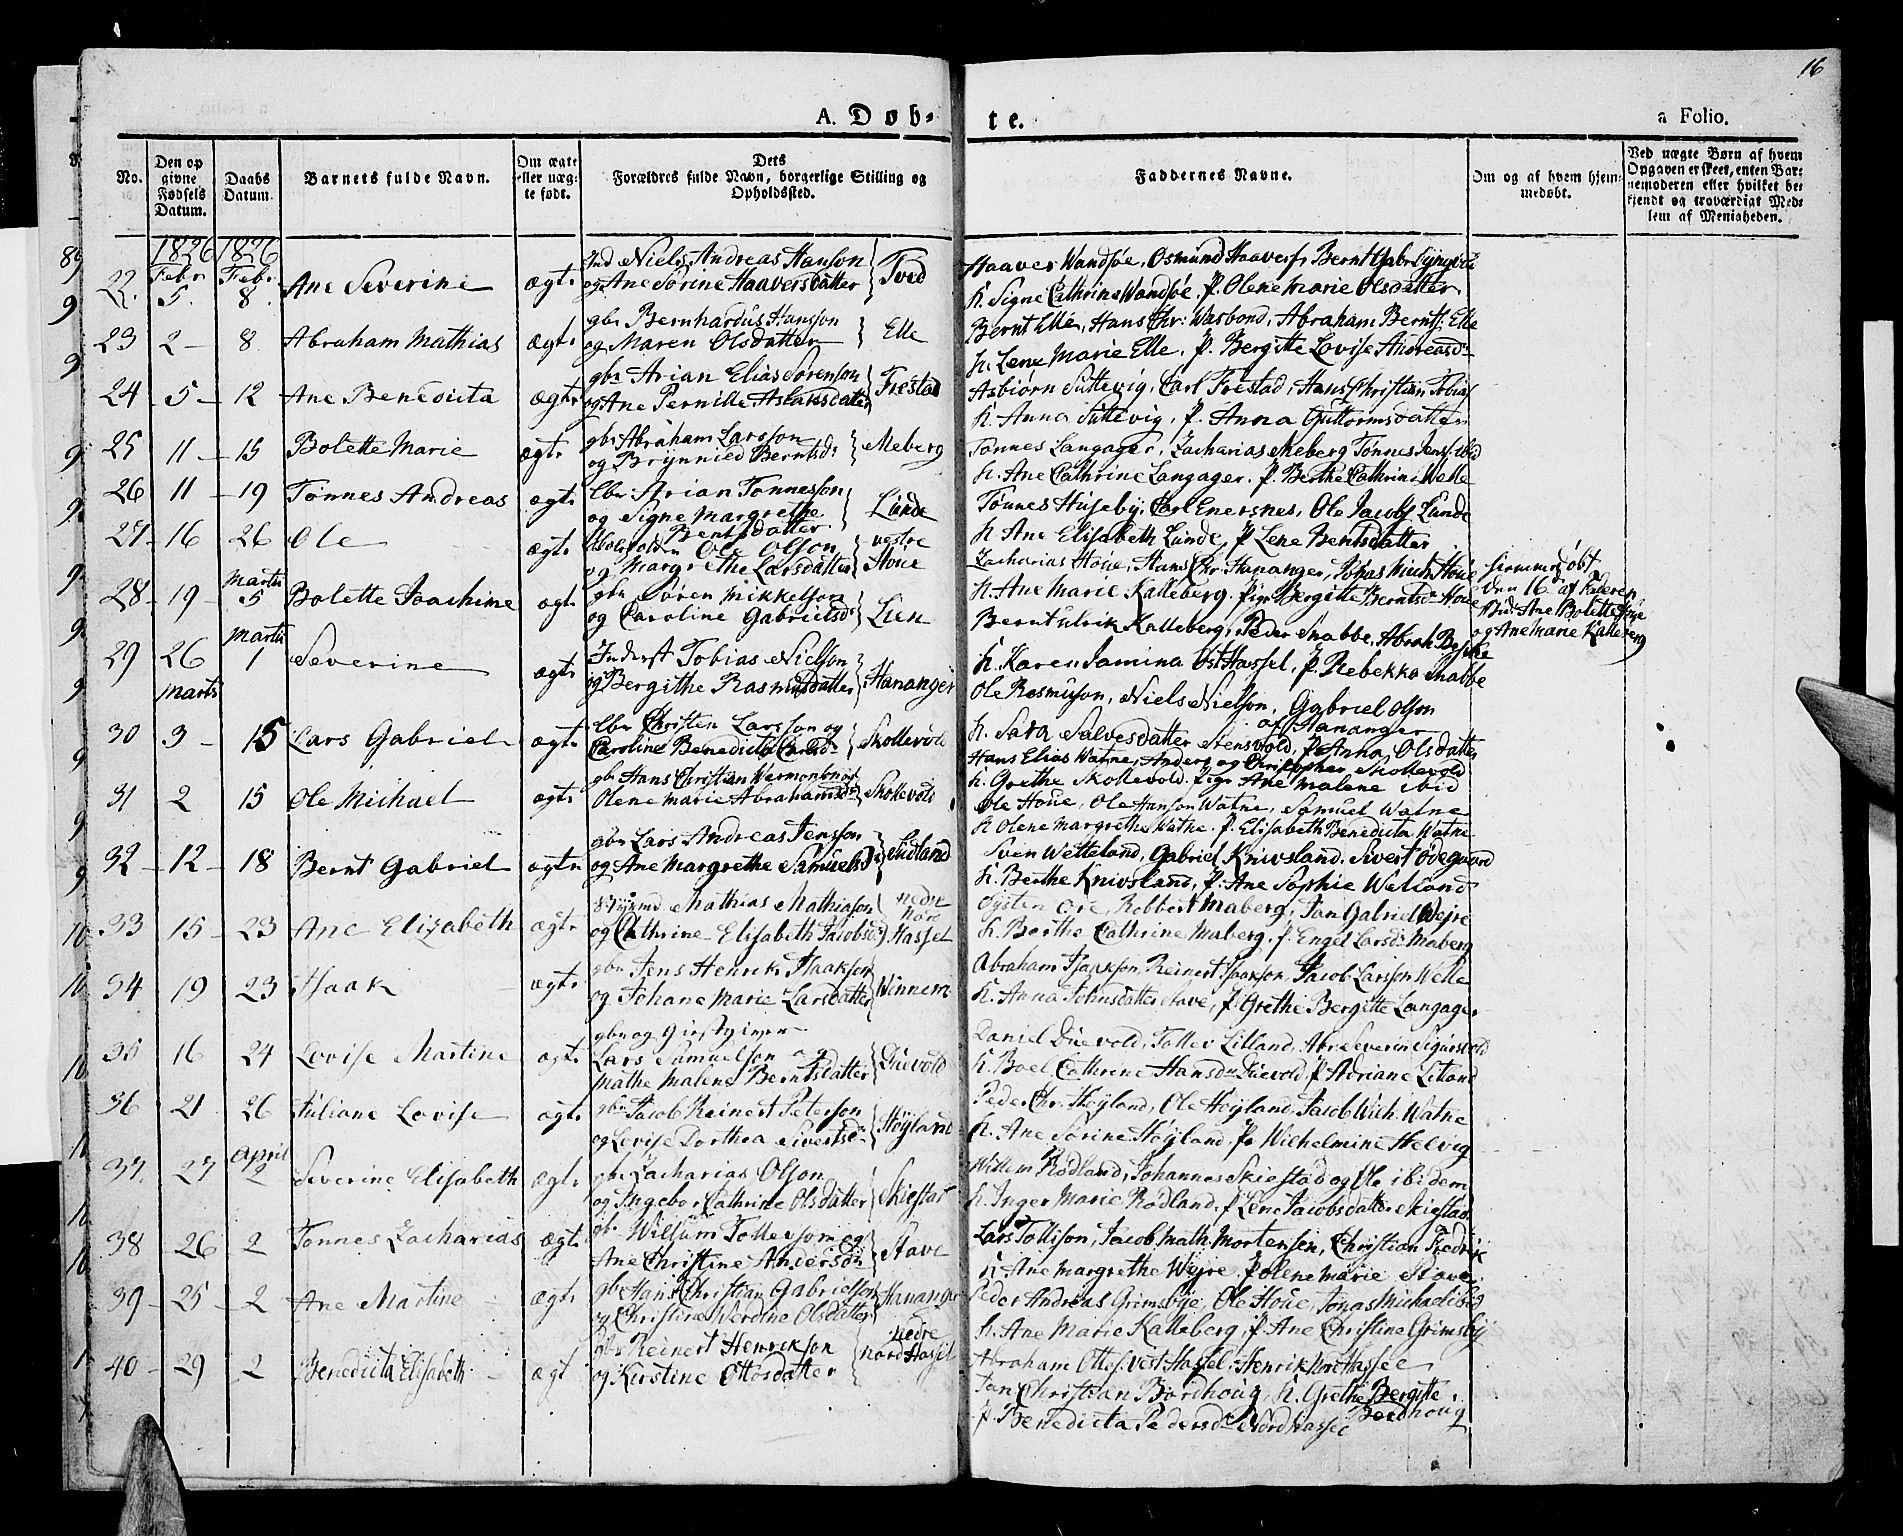 16
A. Døb-
te.
a Folio.
No.
Den op
givne
Fødsels
Datum.
Daabs
Datum.
Barnets fulde Navn.
Om ægte
eller uæg-
te født.
Dets
Forældres fulde Navn, borgerlige Stilling og
Opholdssted.
Faddernes Navne.
Om og af hvem hjem-
medøbt.
Ved uægte Børn af hvem
Opgaven er skeet, enten Bar-
nemoderen eller hvilket be-
kjendt og troværdigt Med-
lem af Menigheden.
1826 1826
22 Febr 5. Febr 8. Ane Severine ægt. Ind Niels Andreas Hanson
og Ane Sørine Haaversdatter Tved
Haaver Wandsøe, Osmund Haavers, Bernt Gabr
K. Signe Cathrine Wandsøe. P. Olene Marie Olsdatter
23 2 8 Abraham Mathias ægt. gbr Bernhardus Hanson
og Maren Olsdatter Elle
Bernt Elle, Hans Chr: Wasbond, Abraham Bernts. Elle
K. Lene Marie Elle, P. Bergitte Lovise Andreasd.
24 5 12 Ane Benedicta ægt. gbr Arian Elias Sørenson
og Ane Pernille Aslaksdatter Trestad
Asbiørn Suttevig, Carl Trestad, Hans Christian Tobias
K. Anna Suttevig, P. Anna Guttormsdatter
25 11 15 Bolette Marie ægt. gbr Abraham Larsson
og Brynnied Berntsd. Meberg
Tønnes Langager, Zacharias Meberg Tønnes Jens. ibid
K. Ane Cathrine Langager. P. Berthe Cathrine Welle
26 11 19 Tønnes Andreas ægt. Arian Tønnesson
og Signe Margrethe
Berntsdatter Lunde
Tønnes Huseby, Carl Enersnes, Ole Jacobs. Lunde
K. Ane Elisabeth Lunde, P. Lene Berntsdatter
27 16 26 Ole ægt. Ole Olson
og Margrethe Larsdatter vestre
Høue
Zacharias Høue, Hans Chr. Hananger, Jonas Mich. Høue
K. Ane Marie Kalleberg. Pige Bergitte Berntsd. Høue
hiemmedøbt
den 16 af Faderen
Ane Bolette
og Ane Marie Kalleberg
28 19 Martii 5 Bolette Joachime ægt. gbr Søren Mikkelson
og Caroline Gabrielsd. Lien
Bernt Ulrik Kalleberg, Peder Snabbe, Abrah.
K. Karen Jamina Øst Hassel, P. Rebekka Snabbe
29 26 Martii 1 Severine ægt. Inderst Tobias Nielson
og Bergithe Rasmusdatter Hananger
Ole Rasmuson, Niels Nielson, Gabriel Olson
af Hananger
K. Sara Salvesdatter Stensvold, P. Anna Olsdatter
Marts
30 3 15 Lars Gabriel ægt. Christen Larsson og
Caroline Benedicta Skollevold
Hans Elias Watne, Anders og Christopher Skollevold
K. Grethe Skollevold. Pige Ane Malene ibid
31 2 15 Ole Michael ægt. gbr Hans Christian
Olene Marie Abrahamsd. Skollevold
Ole Høue, Ole Hanson Watne, Samuel Watne
K. Olene Margrethe Watne. P. Elisabeth Benedicta Watne
32 12 18 Bernt Gabriel ægt. gbr Lars Andreas Jensson
og Ane Margrethe Samuelsd. Sudland
Sven Wetteland, Gabriel Knivsland. Sivert Ødegaard
K. Berthe Knivsland, P. Ane Sophie
33 15 23 Ane Elizabeth ægt. Mathias Mathiason
og Cathrine Elisabeth Jacobsd. nedre
Nore
Hassel
Øysten Ore, Robbert Maberg, Jan Gabriel Wejre
K. Berthe Cathrine Maberg. P. Engel Larsd. Maberg
34 19 23 Isaak ægt. gbr Jens Henrik Isaakson
og Johane Marie Larsdatter Winnem
Abraham Isaakson, Reinert Isaakson Jacob Larsson Welle
K. Anna Johnsdatter Stave, P. Grethe Bergitte Langager
35 16 24 Lovise Martine ægt. gbr og Giestgiver
Lars Samuelson og
Mathe Malene Berntsdatter Duevold
Daniel Duevold, Tollev Lilland, Abr. Severin Sigursvold
K. Boel Cathrine Hansd. Duevold, P. Adriane Lilland
36 21 26 Juliane Lovise ægt. gbr Jacob Reinert Peterson
og Lovise Dorthea Sivertsd. Høyland
Peder Chr. Høyland, Ole Høyland, Jacob Wilh. Watne
K. Ane Sørine Høyland P. Wilhelmine Helvig
37 27 April 2 Severine Elisabeth ægt. gbr Zacharias Olson
og Ingebor Cathrine Olsdatter Skiestad
Willem Rødland, Johannes Skiestad og Ole ibidem
K. Inger Marie Rødland. P. Lene Jacobsdatter Skiestad
38 26 2 Tønnes Zacharias ægt. gbr Willum Tollerson og
Ane Christine Anderson Stave
Lars Tollison, Jacob Math. Mortensen, Christian Fredrik
K. Ane Margrethe Wejre P. Olene Marie Stave
39 25 2 Ane Martine ægt. gbr Hans Christian Gabrielson
og Christine Werdine Olsdatter Hananger
Peder Andreas Grimsbye, Ole Høue, Jonas Michael ibid
K. Ane Marie Kalleberg, P. Ane Christine Grimsby
40 29 2 Benedicta Elisabeth ægt gbr Reinert Henrikson
og Kirstine Ottosdatter nedre
Nord Hassel
Abraham Ottos. Vest Hassel, Henrik Nord Hassel
Jan Christian Bordhoug, K. Grethe Bergitte
Bordhoug
P. Benedicta Pedersd. Nord Hassel